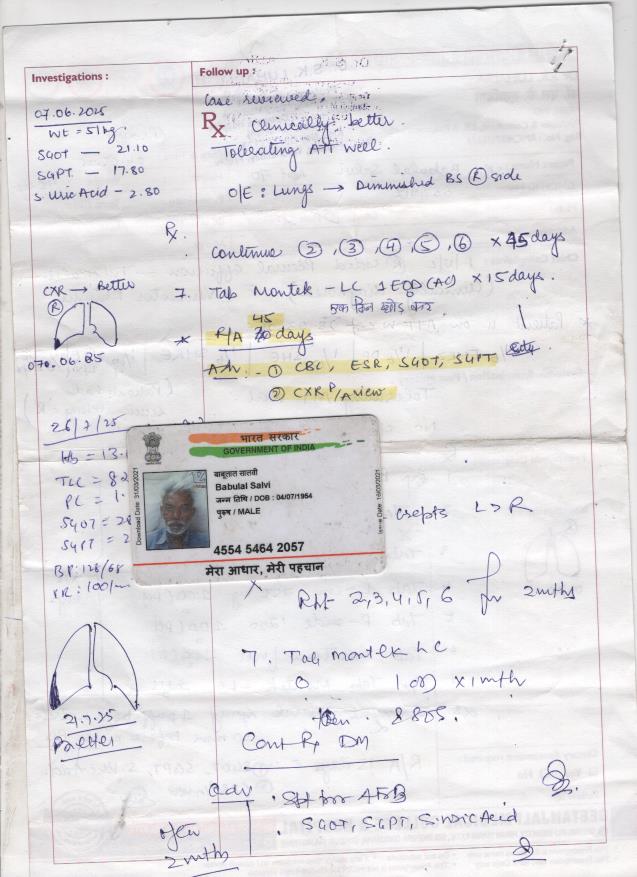 Investigations :
Follow up :
07.06.2025
Wt = 51 kg
SGOT — 21.10
SGPT — 17.80
S. Uric Acid - 2.80
Case reviewed.
Rx Clinically better.
Tolerating ATT well.
O/E : Lungs → Diminished BS (R) side
Rx.
Continue (2), (3), (4), (5), (6) × 45 days
7. Tab Montek - LC 1 EOD (AC) × 15 days.
एक दिन छोड़ कर
CXR → Better
(R)
* R/A 45 days
Adv. - (1) CBC, ESR, SGOT, SGPT
(2) CXR P/A view
26/7/25
Hb = 13.
TLC = 82
PC = 1.
SGOT = 2
SGPT = 2
BP: 128/68
PR: 100/m
भारत सरकार
GOVERNMENT OF INDIA
Download Date: 31/03/2021
बाबूलाल सालवी
Babulal Salvi
जन्म तिथि / DOB : 04/07/1954
पुरुष / MALE
4554 5464 2057
मेरा आधार, मेरी पहचान
crepts L > R
2, 3, 4, 5, 6 for 2 mths
7. Tab Montek LC
0 1 OD × 1 mth
then SOS.
Cont Rx DM
21.7.25
Better
Adv
. Spt for AFB
. SGOT, SGPT, S. Uric Acid
after
2 mths